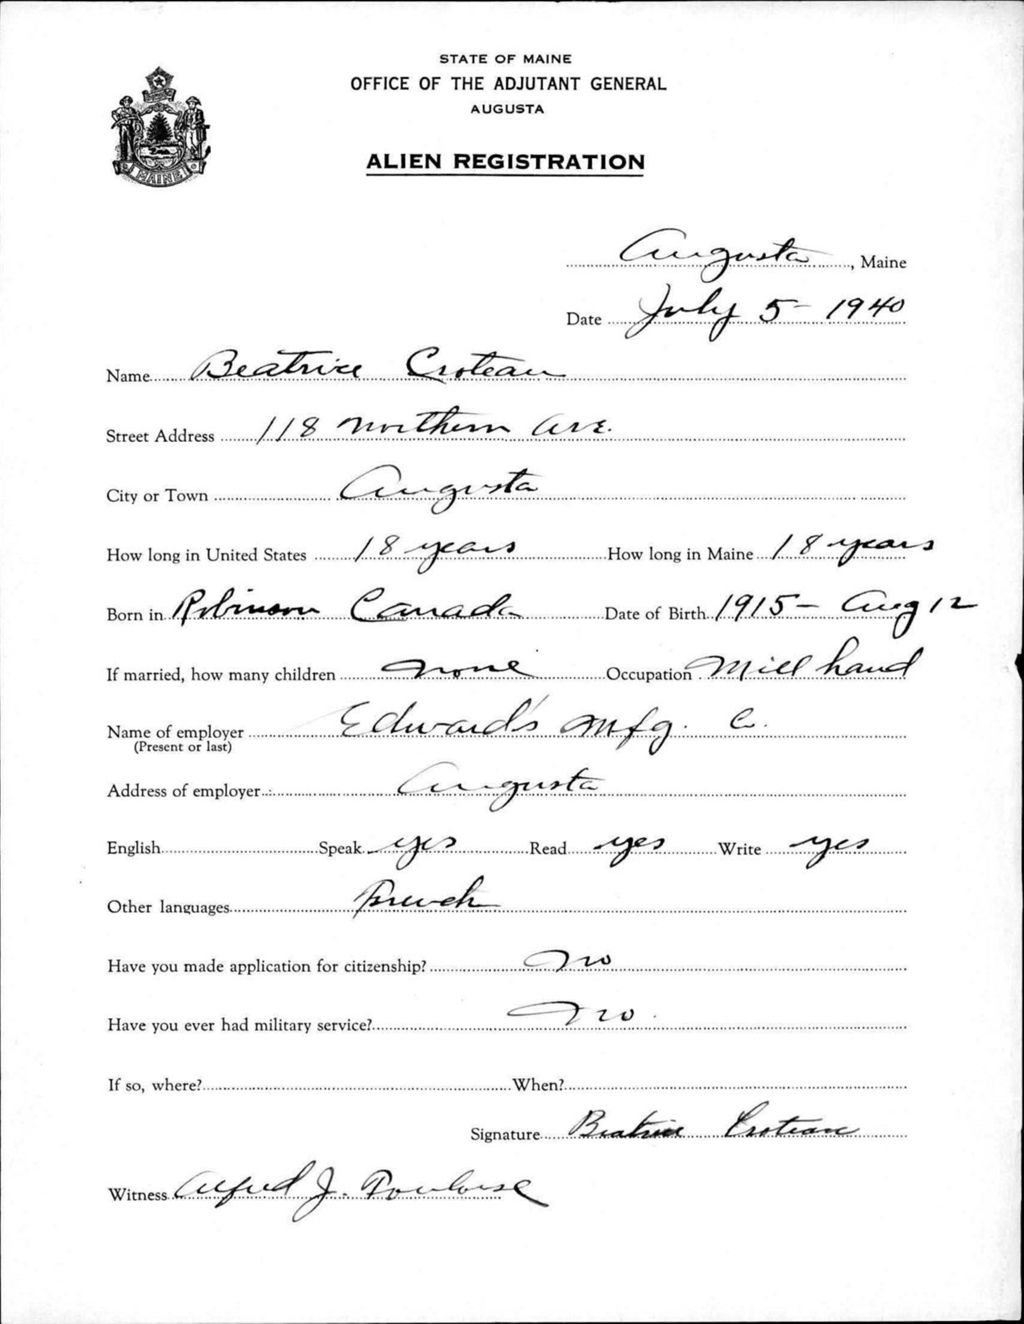 STATE OF MAINE
OFFICE OF THE ADJUTANT GENERAL
AUGUSTA
ALIEN REGISTRATION
MAINE
Augusta, Maine
Date July 5 - 1940
Name Beatrice Croteau
Street Address 118 Northern Ave.
City or Town Augusta
How long in United States 18 years How long in Maine 18 years
Born in Robinson Canada Date of Birth 1915 - Aug 12
If married, how many children none Occupation Mill hand
Name of employer Edward's Mfg. C.
(Present or last)
Address of employer Augusta
English Speak yes Read yes Write yes
Other languages French
Have you made application for citizenship? No
Have you ever had military service? No.
If so, where? When?
Signature Beatrice Croteau
Witness Alfred J. Toulouse